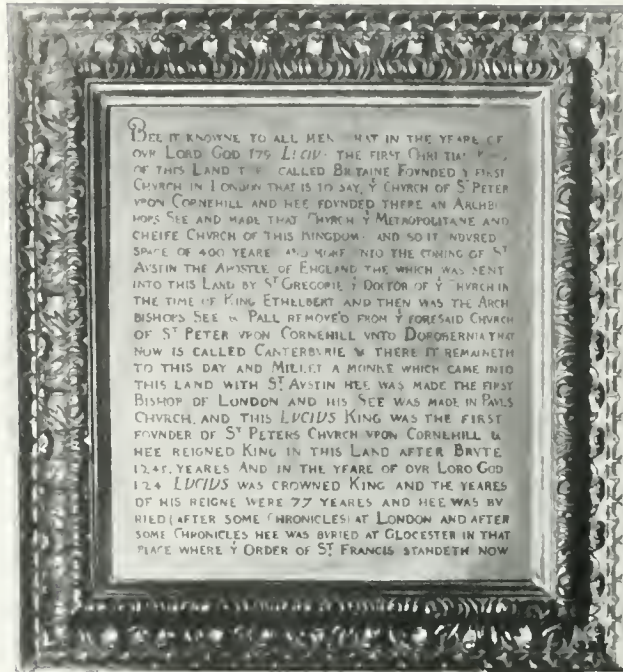 BEE IT KNOWNE TO ALL MEN THAT IN THE YEARE OF
OVR LORD GOD 179 LUCIUS THE FIRST CHRISTIAN KING
OF THIS LAND CALLED BRITAINE FOVNDED Ẏ FIRST
CHVRCH IN LONDON THAT IS TO SAY, Ẏ CHVRCH OF Sᵀ PETER
VPON CORNEHILL AND HEE FOVNDED THERE AN ARCHBI
HOPS SEE AND MADE THAT CHVRCH Ẏ METROPOLITANE AND
CHEIFE CHVRCH OF THIS KINGDOM AND SO IT INDVRED
SPACE OF 400 YEARE AND MORE VNTO THE COMING OF Sᵀ
AVSTIN THE APOSTLE OF ENGLAND THE WHICH WAS SENT
INTO THIS LAND BY Sᵀ GREGORIE Ẏ DOCTOR OF Ẏ CHVRCH IN
THE TIME OF KING ETHELBERT AND THEN WAS THE ARCH
BISHOPS SEE & PALL REMOVE'D FROM Ẏ FORESAID CHVRCH
OF Sᵀ PETER VPON CORNEHILL VNTO DOROBERNIA THAT
NOW IS CALLED CANTERBVRIE & THERE IT REMAINETH
TO THIS DAY AND MILLET A MONKE WHICH CAME INTO
THIS LAND WITH Sᵀ AVSTIN HEE WAS MADE THE FIRST
BISHOP OF LONDON AND HIS SEE WAS MADE IN PAVLS
CHVRCH, AND THIS LUCIUS KING WAS THE FIRST
FOVNDER OF Sᵀ PETERS CHVRCH VPON CORNEHILL &
HEE REIGNED KING IN THIS LAND AFTER BRVTE
1245. YEARES AND IN THE YEARE OF OVR LORD GOD
124 LUCIUS WAS CROWNED KING AND THE YEARES
OF HIS REIGNE WERE 77 YEARES AND HEE WAS BV
RIED (AFTER SOME CHRONICLES) AT LONDON AND AFTER
SOME CHRONICLES HEE WAS BVRIED AT GLOCESTER IN THAT
PLACE WHERE Ẏ ORDER OF Sᵀ FRANCIS STANDETH NOW